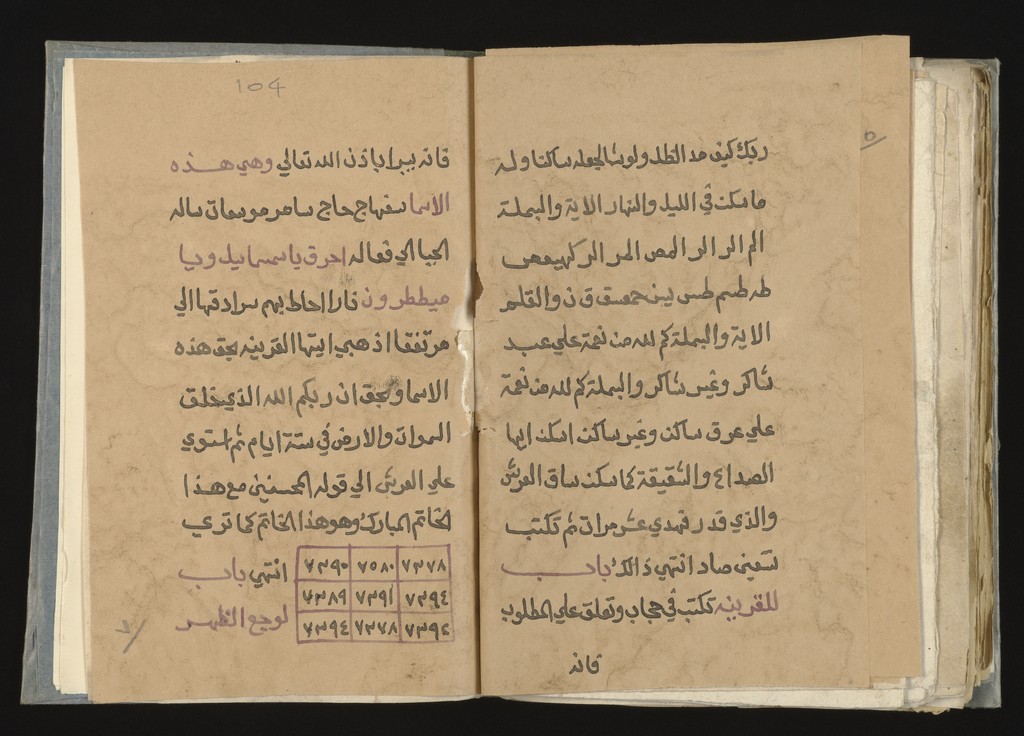 ربك كيف مد الظل ولو شا لجعله ساكنا وله
ما سكن في الليل والنهار الاية والبسملة
الم الر الر المص المر الر كهيعص
طه طسم طس يس حمعسق ق ن والقلم
الاية والبسملة كم لله من نعمة علي عبد
شاكر وغير شاكر والبسملة كم لله من نعمة
علي عرق ساكن وغير ساكن اسكن ايها
الصداع والشقيقة كما سكن ساق العرش
والذي قدر فهدي عشر مرات ثم تكتب
تسعين صاد انتهي ذالك باب
للقرينه تكتب في حجاب وتعلق علي المطلوب
فانه
104
فانه يبرا باذن الله تعالي وهي هذه
الاسما حاج
احرق يا سمسمايل ويا
ميططرون نارا احاط بهم سرادقها الي
مرتفقا اذهبي ايتها القرينه بحق هذه
الاسما وبحق ان ربكم الله الذي خلق
السموات والارض في ستة ايام ثم استوي
علي العرش الي قوله المحسنين مع هذا
الخاتم المبارك وهو هذا الخاتم كما تري
٧٣٧٨ ٧٥٨٠ ٧٣٩٠ انتهي باب
٧٣٩٤ ٧٣٩١ ٧٣٨٩
٧٣٩٢ ٧٣٧٨ ٧٣٩٤ لوجع الظهر